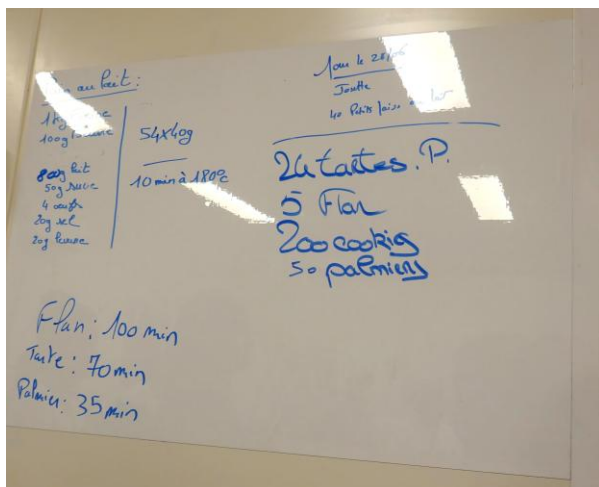 au lait :
1 kg
100g
800g lait
50g sucre
4 oeufs
20g sel
20g levure
54x40g
10 min à 180°C
Pour le 28/06
40 Petits pains au lait
24 tartes. P.
5 Flan
200 cookies
50 palmiers
Flan: 100 min
Tarte: 70 min
Palmier: 35 min